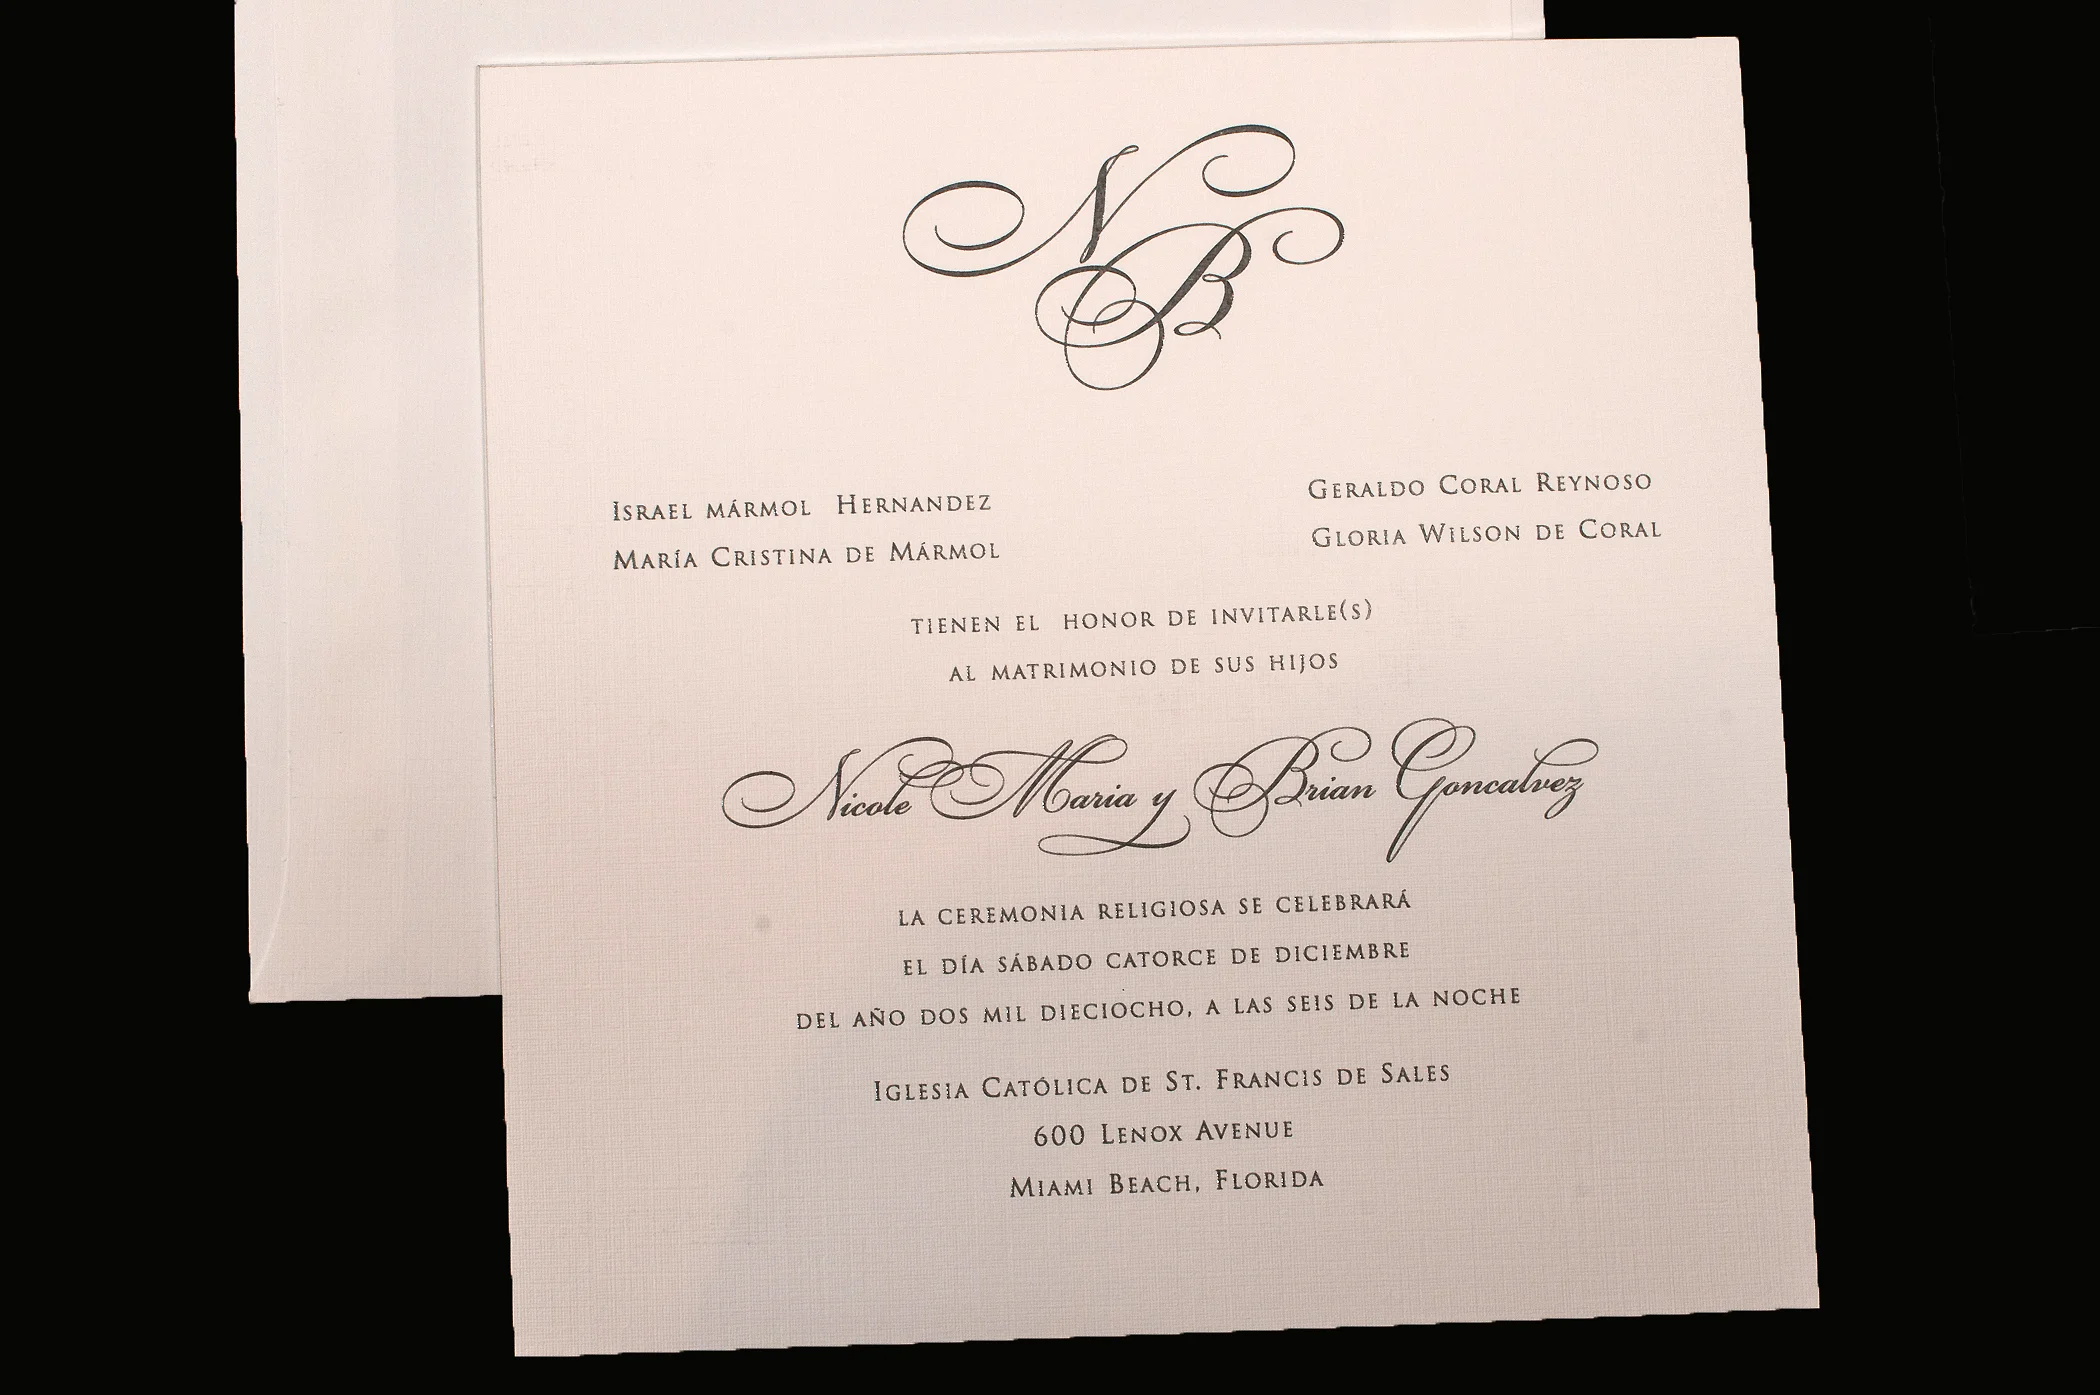 N
B
Israel mármol Hernandez
María Cristina de Mármol
Geraldo Coral Reynoso
Gloria Wilson de Coral
tienen el honor de invitarle(s)
al matrimonio de sus hijos
Nicole Maria y Brian Goncalvez
la ceremonia religiosa se celebrará
el día sábado catorce de diciembre
del año dos mil dieciocho, a las seis de la noche
Iglesia Católica de St. Francis de Sales
600 Lenox Avenue
Miami Beach, Florida